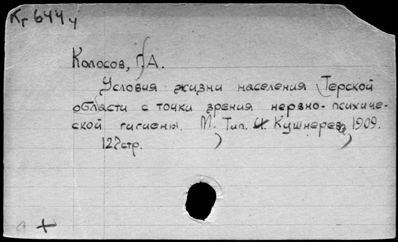 Кг 644 ч
Колосов, Г.А.
Условия жизни населения Терской
области с точки зрения нервно-психиче-
ской гигиены. М., Тип. И. Кушнерев, 1909.
127стр.
+